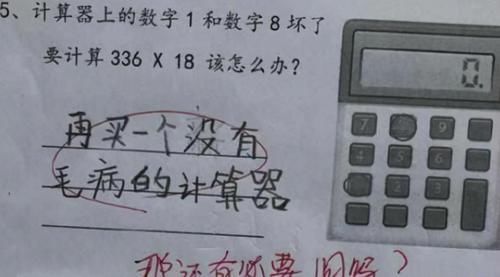 5、计算器上的数字1和数字8坏了
要计算336 X 18 该怎么办?
再买一个没有
毛病的计算器
0.
7
9
4
5
6
2
3
那还有必要问吗?